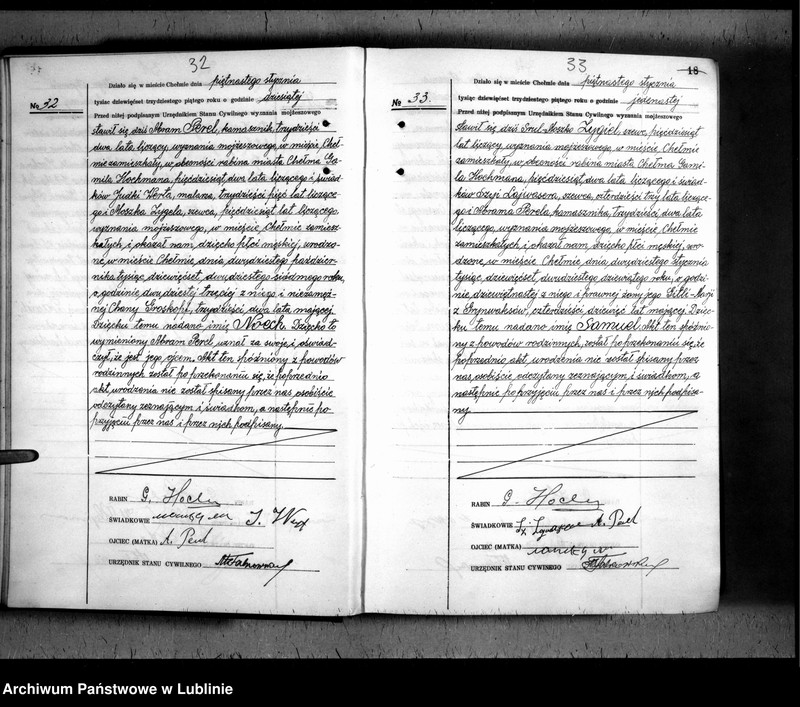 32
№ 32
Działo się w mieście Chełmie dnia piętnastego stycznia
tysiąc dziewięćset trzydziestego piątego roku o godzinie dziesiątej
Przed niżej podpisanym Urzędnikiem Stanu Cywilnego wyznania mojżeszowego
stawił się dziś Abram Perel, kamasznik, trzydzieści
dwa lata liczący, wyznania mojżeszowego, w mieście Cheł-
mie zamieszkały, w obecności rabina miasta Chełma Ge-
mila Hochmana, pięćdziesiąt dwa lata liczącego i świad-
ków Judki Werta, malarza, trzydzieści pięć lat liczące-
go i Moszka Zygela, szewca, pięćdziesiąt lat liczącego,
wyznania mojżeszowego, w mieście Chełmie zamiesz-
kałych, i okazał nam, dziecko płci męskiej, urodzo-
ne, w mieście Chełmie, dnia, dwudziestego paździer-
nika, tysiąc, dziewięćset, dwudziestego siódmego roku,
o godzinie dwudziestej trzeciej z niego i niezamęż-
nej Chany Groskopf, trzydzieści dwa lata mającej.
Dziecku temu nadano imię Noech. Dziecko to
wymieniony Abram Perel uznał za swoje i oświad-
czył, że jest jego ojcem. Akt ten spóźniony z powodów
rodzinnych został po przekonaniu się, że poprzednio
akt urodzenia nie został spisany przez nas, osobiście
odczytany zeznającym i świadkom, a następnie po
przyjęciu przez nas i przez nich podpisany.
RABIN G. Hochm
ŚWIADKOWIE J. Wert
OJCIEC (MATKA) A. Perel
URZĘDNIK STANU CYWILNEGO
33
18
№ 33.
Działo się w mieście Chełmie dnia piętnastego stycznia
tysiąc dziewięćset trzydziestego piątego roku o godzinie jedenastej
Przed niżej podpisanym Urzędnikiem Stanu Cywilnego wyznania mojżeszowego
stawił się dziś Srul-Moszko Zygiel, szewc, pięćdziesiąt
lat liczący, wyznania mojżeszowego, w mieście Chełmie
zamieszkały, w obecności rabina miasta Chełma Gemi-
la Hochmana, pięćdziesiąt dwa lata liczącego i świad-
ków Szyji Lajwasera, szewca, czterdzieści trzy lata liczące-
go i Abrama Perela, kamasznika, trzydzieści dwa lata
liczącego, wyznania mojżeszowego, w mieście Chełmie
zamieszkałych i okazał nam, dziecko płci męskiej, uro-
dzone, w mieście Chełmie, dnia dwudziestego stycznia
tysiąc, dziewięćset, dwudziestego dziewiątego roku, o godzi-
nie dziewiętnastej z niego i prawnej żony jego Gitli-Marji
z Grynwaksów, czterdzieści, dziewięć lat mającej. Dziec-
ku temu nadano imię Samuel. Akt ten spóźnio-
ny z powodów rodzinnych, został po przekonaniu się, że
poprzednio akt urodzenia nie został spisany przez
nas, osobiście odczytany zeznającym i świadkom, a
następnie po przyjęciu przez nas i przez nich podpisa-
ny.
RABIN G. Hochm
ŚWIADKOWIE A. Perel
OJCIEC (MATKA)
URZĘDNIK STANU CYWILNEGO
Archiwum Państwowe w Lublinie